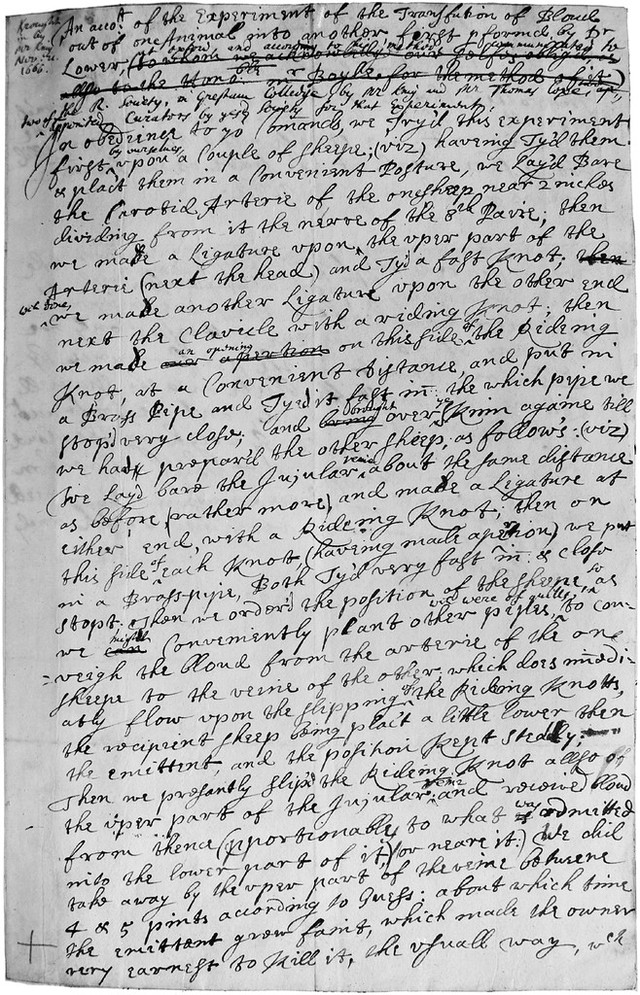 Brought in by Mr King Nov. 21. 1666.
An accot of the Experiment of the Transfusion of Bloud
out of one Animal into another first pformed by Dr
Lower, (to whom we acknowledg our selfes obliged as
at Oxford and according to his method communicated to
allso to the Honble mr Boyle for the method of it)
the R. Society, at Gresham Colledge, by Mr King and Mr Thomas Coxe,
two of ye appointed Curators by ye sd Society for that Experiment.
In obedience to yo Comands, we Try'd this experiment
by ourselves
first, upon a Couple of sheepe; (viz) haveing Ty'd them
& plac't them in a Convenient Posture, we Lay'd Bare
the Carotid Arterie of the one sheep near 2 inches
dividing from it the nerve of the 8th Paire; then
we made a Ligature upon the uper part of the
Arterie (next the head) and Ty'd a fast Knot: then
wch done,
we made another Ligature upon the other end
next the Clavicle with a rideing Knot; then
an opening
we made apertion on this side of the Rideing
Knot, at a Convenient Distance, and put in
a Brass Pipe and Tyed it fast in: the which pipe we
stop'd very close; and brought over ye Skinn againe till
we had prepar'd the other sheep, as follows: (viz)
We Lay'd bare the Jujular veine about the same distance
as before (rather more) and made a Ligature at
either end, with a Rideing Knot; then on
this side of each Knot (haveing made apertion) we put
in a Brass-pipe, Both Ty'd very fast in: & close
stopt. Then we order'd the position of the sheepe so as
wch were of quills,
we might Conveniently plant other pipes, to con-
veigh the bloud from the arterie of the one
sheepe to the veine of the other, which does imedi-
atly flow upon the slipping of the Rideing Knotts,
the recipient sheep being plac't a little lower then
the emittent, and the position Kept steady;
Then we presantly slip'd the Rideing Knot allso of
the uper part of the Jujular veine and received bloud
from thence (pportionably to what was admitted
into the lower part of it, (or neare it.) We did
take away by the uper part of the veine betweene
4 & 5 pints according to Guess: about which time
the emittent grew faint, which made the owner
very earnest to kill it, the usuall way, wch